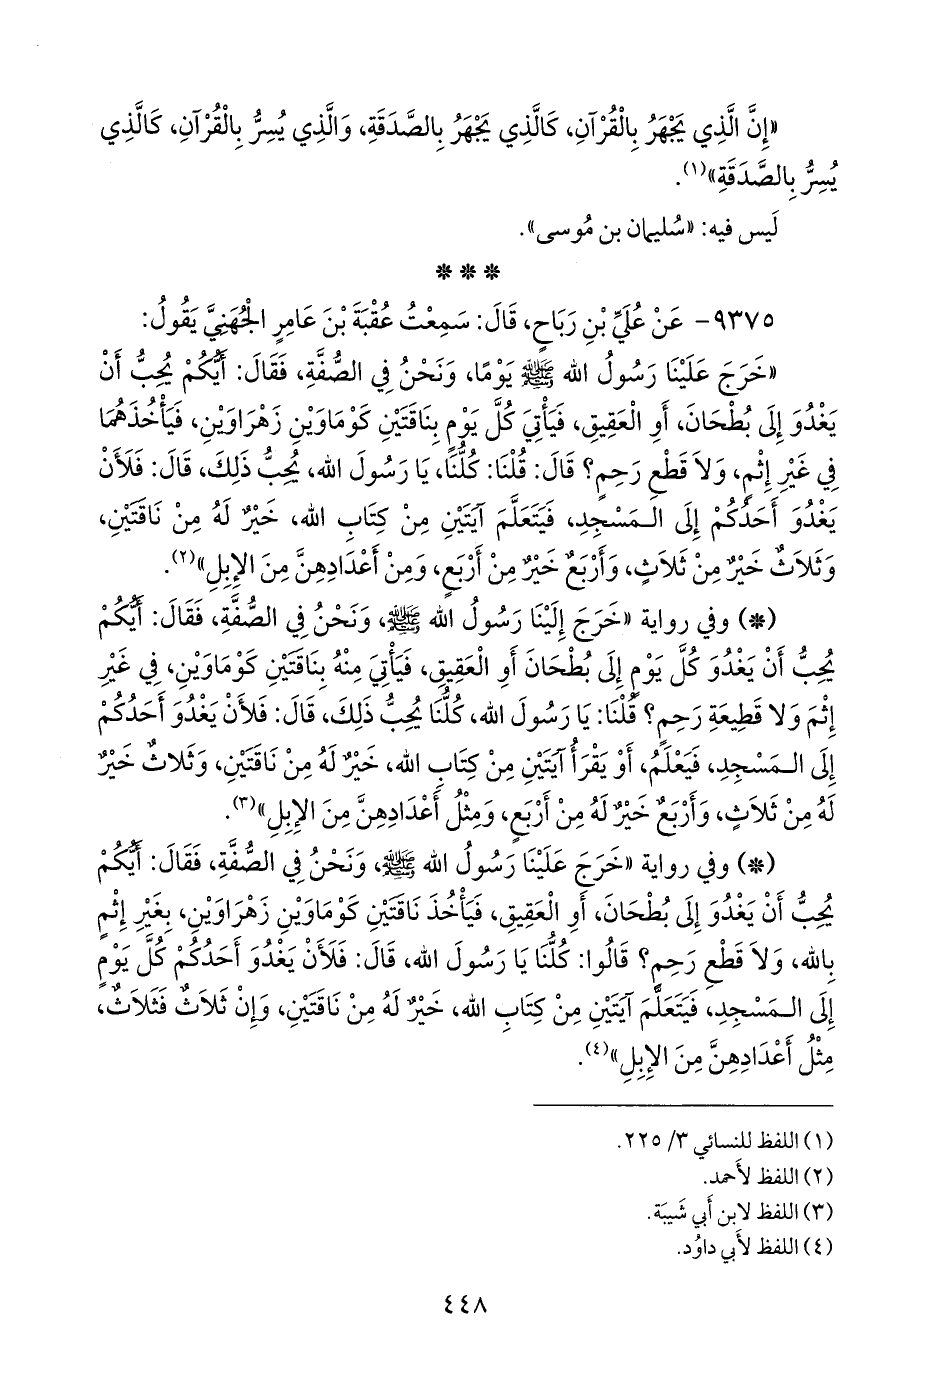 «إِنَّ الَّذِي يَجْهَرُ بِالْقُرْآنِ، كَالَّذِي يَجْهَرُ بِالصَّدَقَةِ، وَالَّذِي يُسِرُّ بِالْقُرْآنِ، كَالَّذِي
يُسِرُّ بِالصَّدَقَةِ»(١).
لَيس فيه: «سُليمان بن مُوسى».
* * *
٩٣٧٥- عَنْ عُلَيِّ بْنِ رَبَاحٍ، قَالَ: سَمِعْتُ عُقْبَةَ بْنَ عَامِرٍ الْجُهَنِيَّ يَقُولُ:
«خَرَجَ عَلَيْنَا رَسُولُ الله ﷺ يَوْمًا، وَنَحْنُ فِي الصُّفَّةِ، فَقَالَ: أَيُّكُمْ يُحِبُّ أَنْ
يَغْدُوَ إِلَى بُطْحَانَ، أَوِ الْعَقِيقِ، فَيَأْتِيَ كُلَّ يَوْمٍ بِنَاقَتَيْنِ كَوْمَاوَيْنِ زَهْرَاوَيْنِ، فَيَأْخُذَهُمَا
فِي غَيْرِ إِثْمٍ، وَلاَ قَطْعِ رَحِمٍ؟ قَالَ: قُلْنَا: كُلُّنَا، يَا رَسُولَ الله، يُحِبُّ ذَلِكَ، قَالَ: فَلأَنْ
يَغْدُوَ أَحَدُكُمْ إِلَى الْمَسْجِدِ، فَيَتَعَلَّمَ آيَتَيْنِ مِنْ كِتَابِ الله، خَيْرٌ لَهُ مِنْ نَاقَتَيْنِ،
وَثَلاَثٌ خَيْرٌ مِنْ ثَلاَثٍ، وَأَرْبَعٌ خَيْرٌ مِنْ أَرْبَعٍ، وَمِنْ أَعْدَادِهِنَّ مِنَ الإِبِلِ»(٢).
(*) وفي رواية «خَرَجَ إِلَيْنَا رَسُولُ الله ﷺ، وَنَحْنُ فِي الصُّفَّةِ، فَقَالَ: أَيُّكُمْ
يُحِبُّ أَنْ يَغْدُوَ كُلَّ يَوْمٍ إِلَى بُطْحَانَ أَوِ الْعَقِيقِ، فَيَأْتِيَ مِنْهُ بِنَاقَتَيْنِ كَوْمَاوَيْنِ، فِي غَيْرِ
إِثْمَ وَلاَ قَطِيعَةِ رَحِمٍ؟ قُلْنَا: يَا رَسُولَ الله، كُلُّنَا يُحِبُّ ذَلِكَ، قَالَ: فَلأَنْ يَغْدُوَ أَحَدُكُمْ
إِلَى الْمَسْجِدِ، فَيَعْلَمُ، أَوْ يَقْرَأُ آيَتَيْنِ مِنْ كِتَابِ الله، خَيْرٌ لَهُ مِنْ نَاقَتَيْنِ، وَثَلاثٌ خَيْرٌ
لَهُ مِنْ ثَلاَثٍ، وَأَرْبَعٌ خَيْرٌ لَهُ مِنْ أَرْبَعٍ، وَمِثْلُ أَعْدَادِهِنَّ مِنَ الإِبِلِ»(٣).
(*) وفي رواية «خَرَجَ عَلَيْنَا رَسُولُ الله ﷺ، وَنَحْنُ فِي الصُّفَّةِ، فَقَالَ: أَيُّكُمْ
يُحِبُّ أَنْ يَغْدُوَ إِلَى بُطْحَانَ، أَوِ الْعَقِيقِ، فَيَأْخُذَ نَاقَتَيْنِ كَوْمَاوَيْنِ زَهْرَاوَيْنِ، بِغَيْرِ إِثْمٍ
بِالله، وَلاَ قَطْعِ رَحِمٍ؟ قَالُوا: كُلُّنَا يَا رَسُولَ الله، قَالَ: فَلَأَنْ يَغْدُوَ أَحَدُكُمْ كُلَّ يَوْمٍ
إِلَى الْمَسْجِدِ، فَيَتَعَلَّمَ آيَتَيْنِ مِنْ كِتَابِ الله، خَيْرٌ لَهُ مِنْ نَاقَتَيْنِ، وَإِنْ ثَلاَثٌ فَثَلاَثٌ،
مِثْلُ أَعْدَادِهِنَّ مِنَ الإِبِلِ»(٤).
(١) اللفظ للنسائي ٣/ ٢٢٥.
(٢) اللفظ لأَحمد.
(٣) اللفظ لابن أَبي شَيبَة.
(٤) اللفظ لأَبي داوُد.
٤٤٨